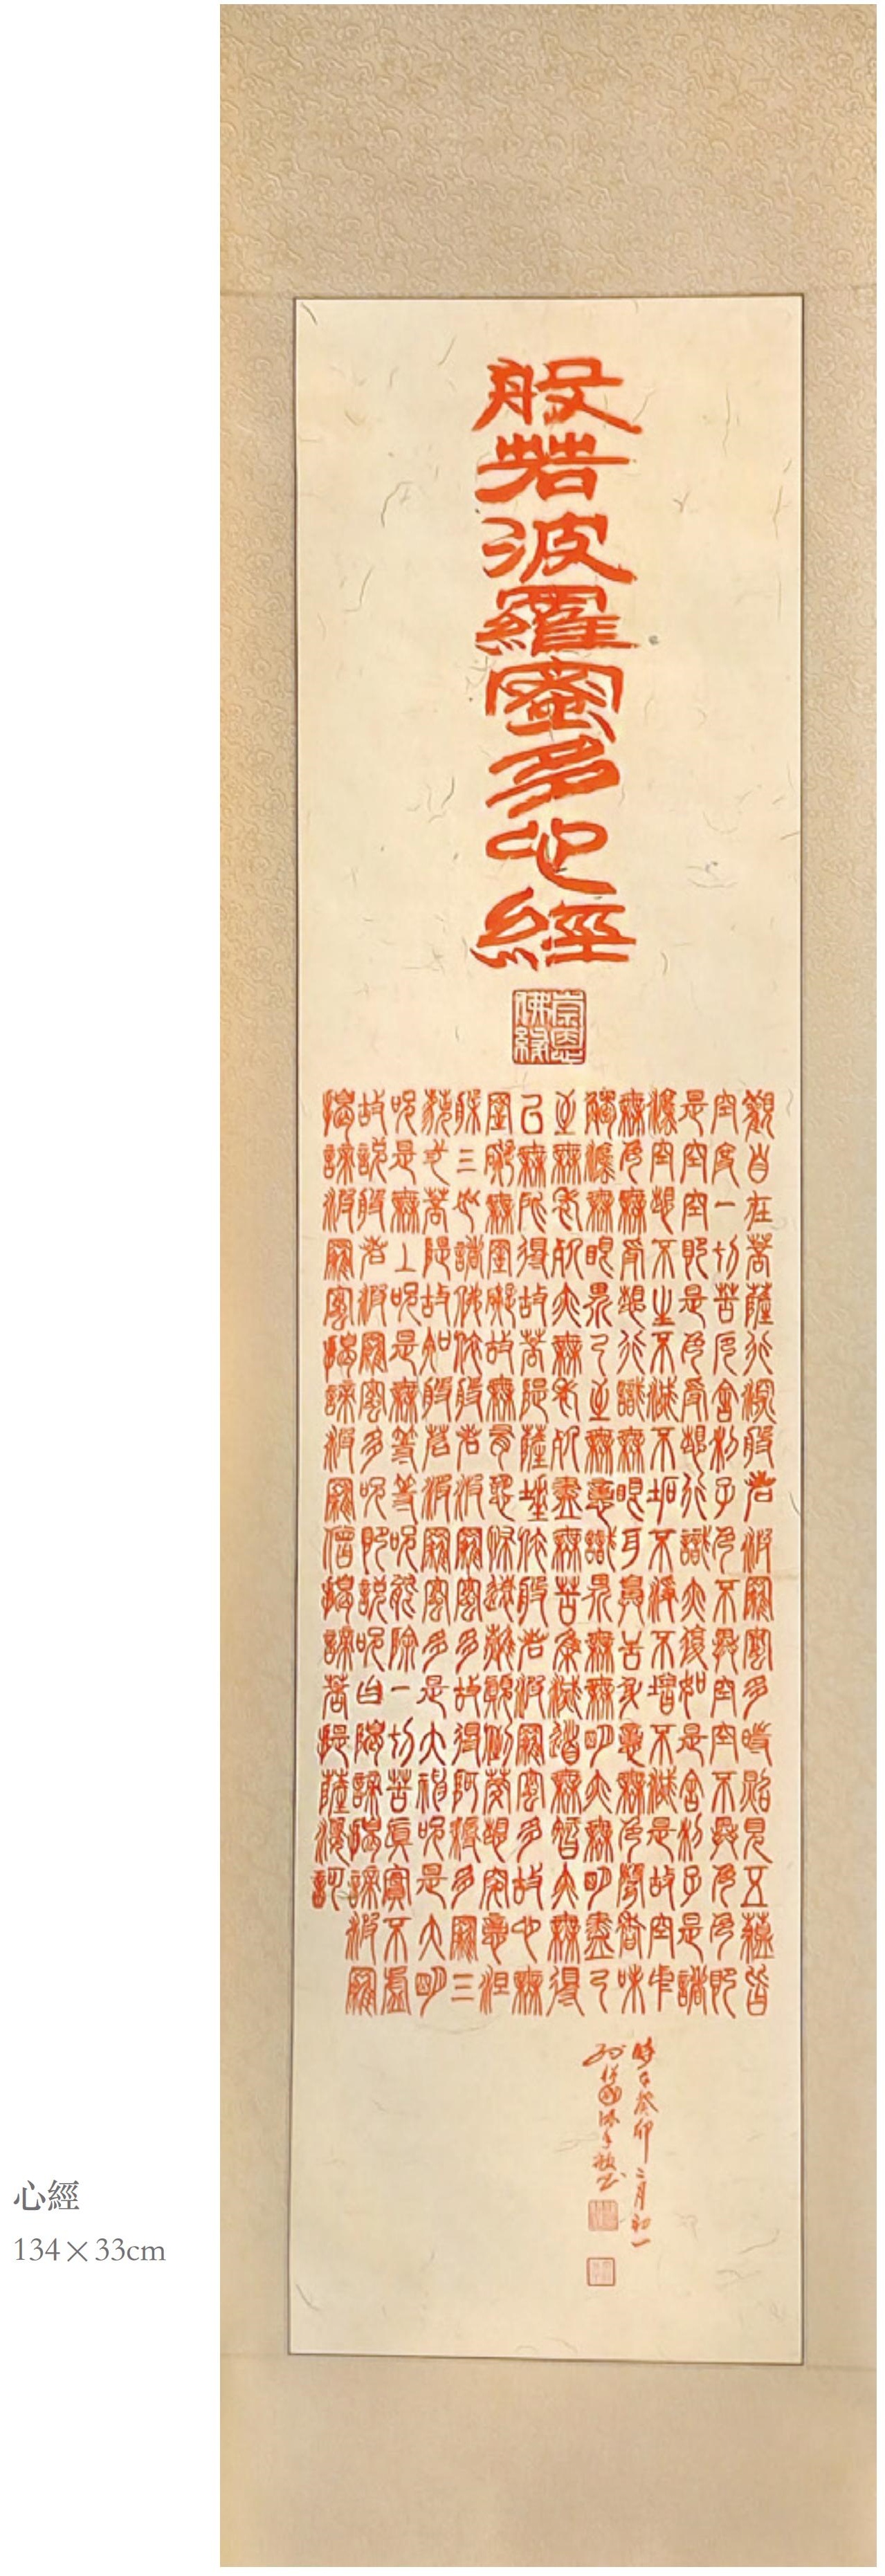 般若波羅蜜多心經
崇恩
佛緣
觀自在菩薩行深般若波羅蜜多時照見五蘊皆
空度一切苦厄舍利子色不異空空不異色色即
是空空即是色受想行識亦復如是舍利子是諸
灋空想不生不滅不垢不淨不增不減是故空中
無色無受想行識無眼耳鼻舌身意無色聲香味
觸灋無眼界乃至無意識界無無明亦無明盡乃
至無老死亦無老死盡無苦集滅道無智亦無得
以無所得故菩提薩埵依般若波羅蜜多故心無
罣礙無罣礙故無有恐怖遠離顛倒夢想究竟涅
槃三世諸佛依般若波羅蜜多故得阿耨多羅三
藐三菩提故知般若波羅蜜多是大神咒是大明
咒是無上咒是無等等咒能除一切苦真實不虛
故說般若波羅蜜多咒即說咒曰揭諦揭諦波羅
揭諦波羅蜜揭諦波羅僧揭諦菩提薩婆訶
時在癸卯二月初一
心經
134×33cm